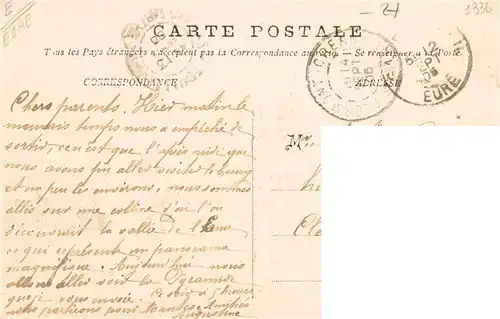 E
EURE
- 24
1336
CARTE POSTALE
Tous les Pays étrangers n'acceptent pas la Correspondance au recto (Se renseigner à la Poste.
CORRESPONDANCE
ADRESSE
EURE
Chers parents. Hier matin le
mauvais temps nous a empêché de
sortir, ce n'est que l'après midi que
nous avons pu aller visiter le bourg
et un peu les environs, nous sommes
allés sur une colline d'où l'on
découvrait la vallée de l'Eure
ce qui représente un panorama
magnifique. Aujourd'hui nous
allons aller voir la
que je vous envoie. Ce soir à 5 heures
nous partirons pour Mantes. Amitiés
Augustine
M